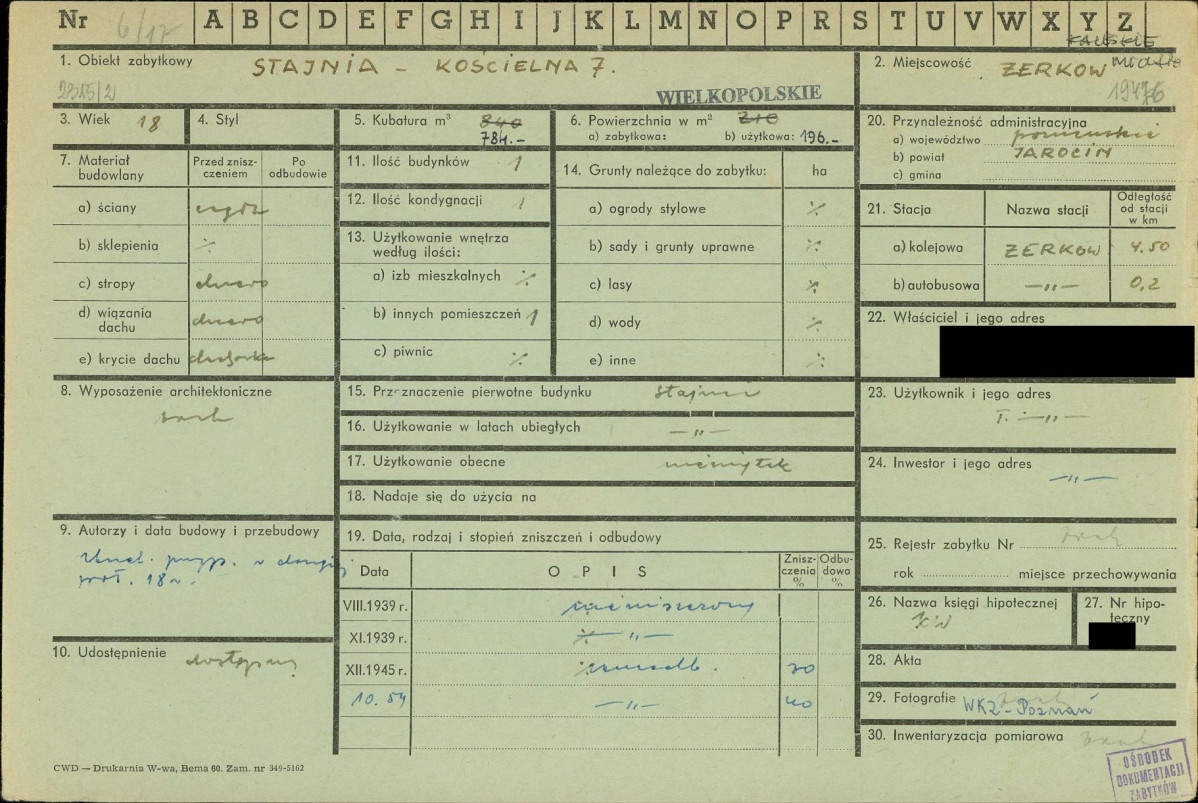 Nr 6/17 A B C D E F G H I J K L M N O P R S T U V W X Y Z
1. Obiekt zabytkowy STAJNIA - KOŚCIELNA 7.
2315/2
WIELKOPOLSKIE
2. Miejscowość ŻERKÓW
3. Wiek 18
4. Styl
5. Kubatura m³ 840
784.-
6. Powierzchnia w m² 210
a) zabytkowa: b) użytkowa: 196.-
20. Przynależność administracyjna
a) województwo poznańskie
b) powiat JAROCIN
c) gmina
7. Materiał budowlany
Przed znisz-
czeniem
Po
odbudowie
a) ściany cegła
b) sklepienia ·/·
c) stropy drewno
d) wiązania
dachu drewno
e) krycie dachu dachówka
8. Wyposażenie architektoniczne
brak
9. Autorzy i data budowy i przebudowy
Zbud. przyp. w drugiej
poł. 18 w.
10. Udostępnienie dostępny
11. Ilość budynków 1
12. Ilość kondygnacji 1
13. Użytkowanie wnętrza
według ilości:
a) izb mieszkalnych ·/·
b) innych pomieszczeń 1
c) piwnic ·/·
14. Grunty należące do zabytku: ha
a) ogrody stylowe ·/·
b) sady i grunty uprawne ·/·
c) lasy ·/·
d) wody ·/·
e) inne ·/·
15. Przeznaczenie pierwotne budynku stajnia
16. Użytkowanie w latach ubiegłych —„—
17. Użytkowanie obecne nieużytek
18. Nadaje się do użycia na
19. Data, rodzaj i stopień zniszczeń i odbudowy
Data OPIS Znisz-
czenia
%
Odbu-
dowa
%
VIII.1939 r. niezniszczony
XI.1939 r. —„—
XII.1945 r. 30
10.59 —„— 40
21. Stacja Nazwa stacji Odległość
od stacji
w km
a) kolejowa ŻERKÓW 4.50
b) autobusowa —„— 0,2
22. Właściciel i jego adres
23. Użytkownik i jego adres
—„—
24. Inwestor i jego adres
—„—
25. Rejestr zabytku Nr brak
rok miejsce przechowywania
26. Nazwa księgi hipotecznej
KW
27. Nr hipo-
teczny
28. Akta
29. Fotografie WKZ-Poznań
30. Inwentaryzacja pomiarowa brak
CWD — Drukarnia W-wa, Bema 60. Zam. nr 349-5162
OŚRODEK
DOKUMENTACJI
ZABYTKÓW